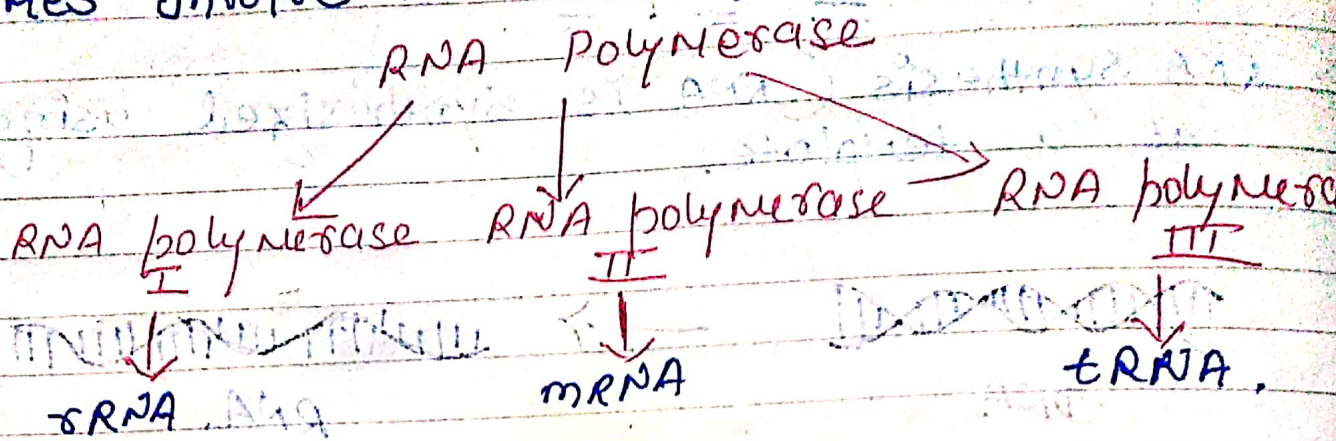 RNA Polymerase
RNA polymerase RNA polymerase RNA polymera
I II III
rRNA mRNA tRNA.